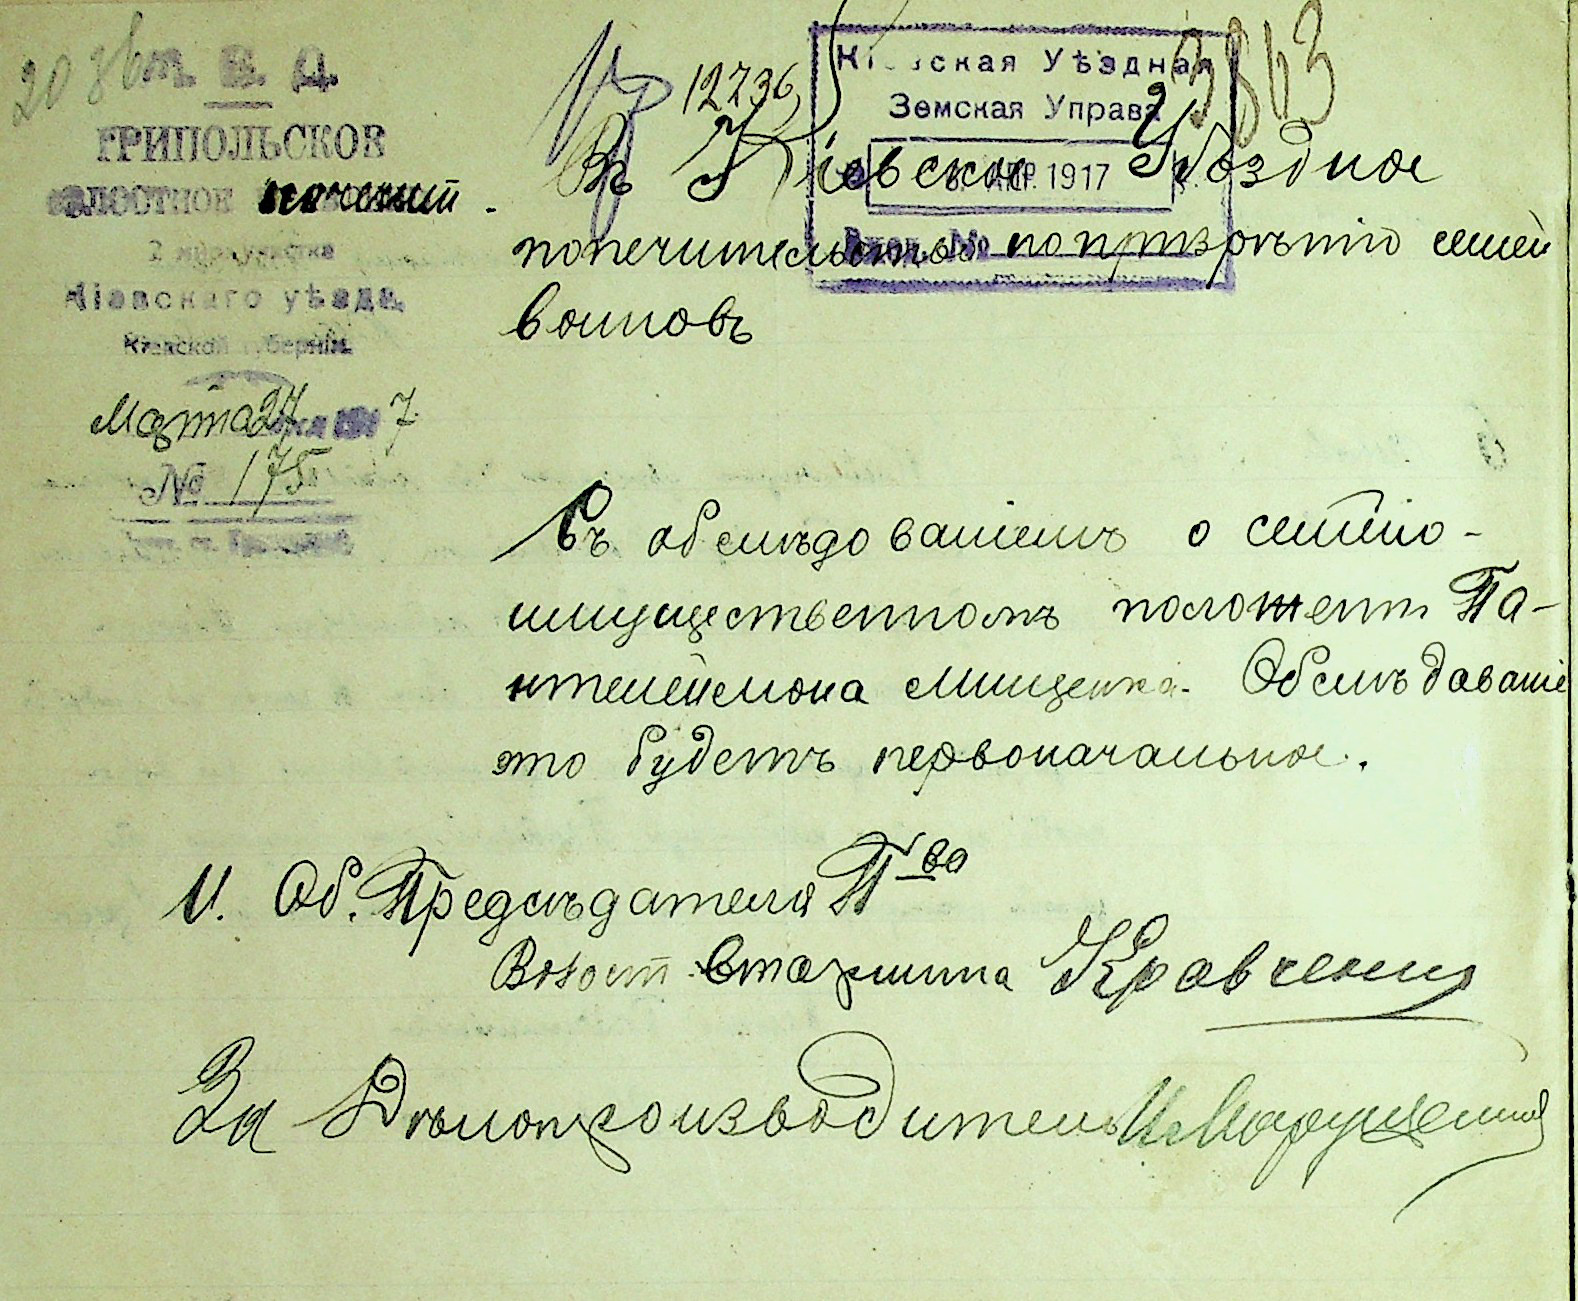 М. В. Д.
ТРИПОЛЬСКОЕ
ВОЛОСТНОЕ попечит.
2 мир. участка
Кіевскаго уѣзда,
Кіевской губерніи.
Марта 27 дня 1917
№ 175
12736
3863
Кіевская Уѣздная
Земская Управа
АПР. 1917
Вход. №
Въ Кіевское Уѣздное
попечительство по призрѣнію семей
воиновъ
Съ обслѣдованіемъ о семейно-
имущественномъ положеніи Па-
нтелеймона Мищенка. Обслѣдованіе
это будетъ первоначальное.
И. Об. Предсѣдателя П-ва
Волост. Старшина Кравченко
За Дѣлопроизводитель